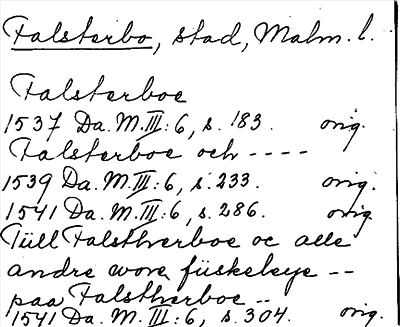 Falsterbo, stad, Malm. l.
Falsterboe
1537 Da. M. III: 6, s. 183. orig.
Falsterboe och ----
1539 Da. M. III: 6, s. 233. orig.
1541 Da. M. III: 6, s. 286. orig.
Tüll Falstherboe oc alle
andre wore füskeleye --
paa Falstherboe --
1541 Da. M. III: 6, s. 304. orig.